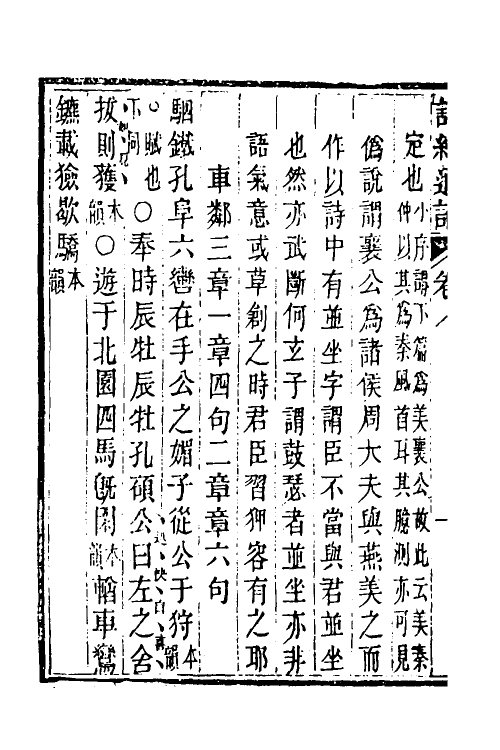 詩經通論　卷八　一
定也小序謂下篇爲美襄公故此云美秦
仲以其爲秦風首耳其臆測亦可見
僞說謂襄公爲諸侯周大夫與燕美之而
作以詩中有並坐字謂臣不當與君並坐
也然亦武斷何玄子謂鼓瑟者並坐亦非
語氣意或草創之時君臣習狎容有之耶
車鄰三章一章四句二章章六句
駟鐵孔阜六轡在手公之媚子從公于狩本韻
○賦也下同○奉時辰牡辰牡孔碩公曰左之舍
拔則獲本韻○遊于北園四馬既閑本韻輶車鸞
鑣載獫歇驕本韻